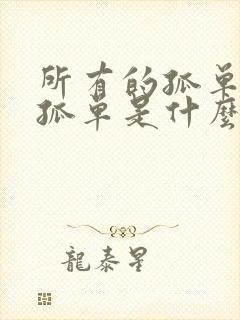 所有的孤单
孤单是什麼
龍泰星